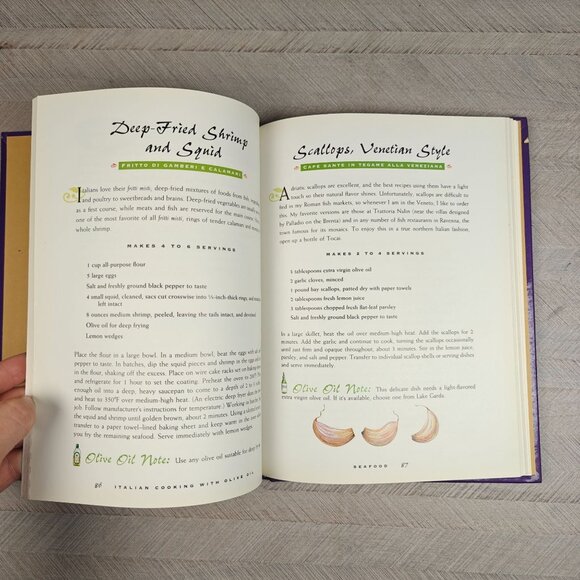 Deep-Fried Shrimp
and Squid
FRITTO DI GAMBERI E CALAMARI
Italians love their fritti misti, deep-fried mixtures of foods from fish, vegetables,
and poultry to sweetbreads and brains. Deep-fried vegetables are usually
as a first course, while meats and fish are reserved for the main course.
one of the most favorite of all fritti misti, rings of tender calamari and
whole shrimp.
MAKES 4 TO 6 SERVINGS
1 cup all-purpose flour
5 large eggs
Salt and freshly ground black pepper to taste
4 small squid, cleaned, sacs cut crosswise into ½-inch-thick rings, and
left intact
8 ounces medium shrimp, peeled, leaving the tails intact, and deveined
Olive oil for deep frying
Lemon wedges
Place the flour in a large bowl. In a medium bowl, beat the eggs with
pepper to taste. In batches, dip the squid pieces and shrimp in the egg
in the flour, shaking off the excess. Place on wire cake racks set on baking
and refrigerate for 1 hour to set the coating. Preheat the oven to 200°
enough oil into a deep, heavy saucepan to come to a depth of 2 to
and heat to 350°F over medium-high heat. (An electric deep fryer does
job. Follow manufacturer's instructions for temperature.) Working in
the squid and shrimp until golden brown, about 2 minutes. Using a slotted
transfer to a paper towel-lined baking sheet and keep warm in the oven
you fry the remaining seafood. Serve immediately with lemon wedges.
Olive Oil Note: Use any olive oil suitable for deep
86 ITALIAN COOKING WITH OLIVE OIL
Scallops, Venetian Style
CAPE SANTE IN TEGAME ALLA VENEZIANA
Adriatic scallops are excellent, and the best recipes using them have a light
touch so their natural flavor shines. Unfortunately, scallops are difficult to
find in my Roman fish markets, so whenever I am in the Veneto, I like to order
this. My favorite versions are those at Trattoria Nalin (near the villas designed
by Palladio on the Brenta) and in any number of fish restaurants in Ravenna, the
town famous for its mosaics. To enjoy this in a true northern Italian fashion,
open up a bottle of Tocai.
MAKES 2 TO 4 SERVINGS
3 tablespoons extra virgin olive oil
2 garlic cloves, minced
1 pound bay scallops, patted dry with paper towels
2 tablespoons fresh lemon juice
3 tablespoons chopped fresh flat-leaf parsley
Salt and freshly ground black pepper to taste
In a large skillet, heat the oil over medium-high heat. Add the scallops for 2
minutes. Add the garlic and continue to cook, turning the scallops occasionally
until just firm and opaque throughout, about 3 minutes. Stir in the lemon juice,
parsley, and salt and pepper. Transfer to individual scallop shells or serving dishes
and serve immediately.
Olive Oil Note: This delicate dish needs a light-flavored
extra virgin olive oil. If it's available, choose one from Lake Garda.
SEAFOOD 87